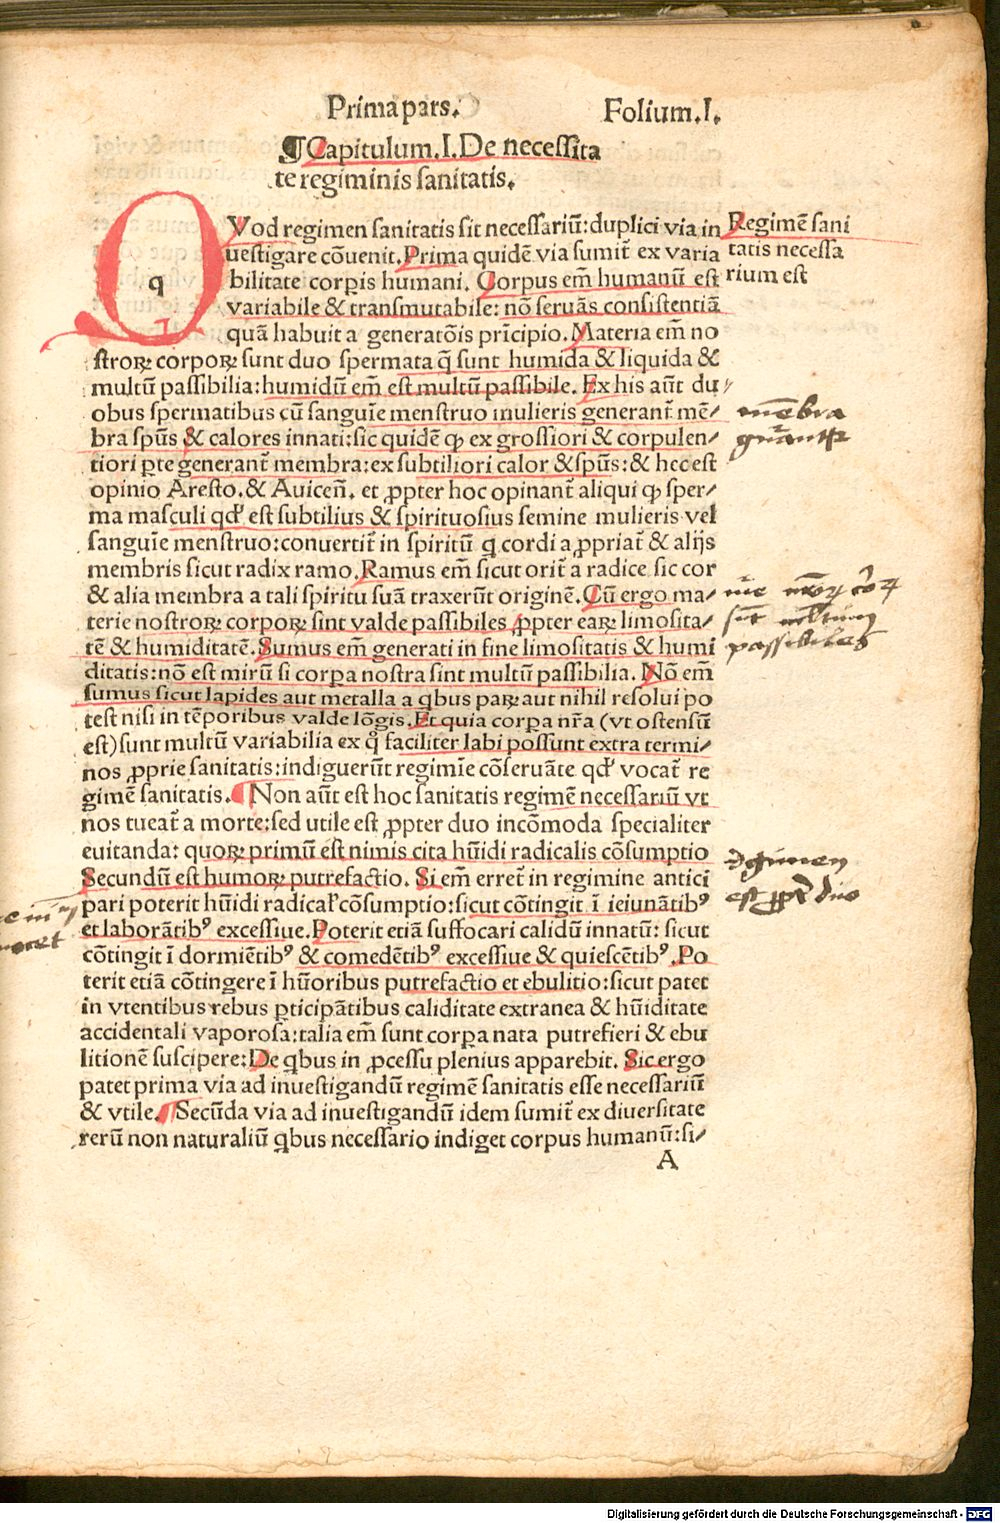 Prima pars. Folium.I.
¶Capitulum.I.De neceſſita
te regiminis ſanitatis.
QVod regimen ſanitatis ſit neceſſariū:duplici via in
ueſtigare cōuenit.Prima quidē via ſumit̄ ex varia
bilitate corpis humani. Corpus em̄ humanū eſt
variabile & tranſmutabile: nō ſeruās conſiſtentiā
quā habuit a generatōis prīcipio.Materia em̄ no
ſtroꝝ corpoꝝ ſunt duo ſpermata q̄ ſunt humida & liquida &
multū paſſibilia:humidū em̄ eſt multū paſſibile. Ex his aūt du
obus ſpermatibus cū ſanguīe menſtruo mulieris generant̄ mē/
bra ſpūs & calores innati:ſic quidē ꝙ ex groſſiori & corpulen/
tiori ꝑte generant̄ membra:ex ſubtiliori calor &ſpūs:& hec eſt
opinio Areſto.& Auiceñ. et ꝓpter hoc opinant̄ aliqui ꝙ ſper/
ma maſculi qd' eſt ſubtilius & ſpirituoſius ſemine mulieris vel
ſanguīe menſtruo:conuertit̄ in ſpiritū q cordi aꝓpriat̄ & alijs
membris ſicut radix ramo.Ramus em̄ ſicut orit̄ a radice ſic cor
& alia membra a tali ſpiritu ſuā traxerūt originē.Cū ergo ma/
terie noſtroꝝ corpoꝝ ſint valde paſſibiles ꝓpter eaꝝ limoſita/
tē & humiditatē.Sumus em̄ generati in fine limoſitatis & humi
ditatis:nō eſt mirū ſi corpa noſtra ſint multū paſſibilia. Nō em̄
ſumus ſicut lapides aut metalla a qbus paꝝ aut nihil reſolui po
teſt niſi in tēporibus valde lōgis.Et quia corpa nr̄a (vt oſtenſū
eſt)ſunt multū variabilia ex q̊ faciliter labi poſſunt extra termi/
nos ꝓprie ſanitatis:indiguerūt regimīe cōſeruāte qd' vocat̄ re
gimē ſanitatis.¶Non aūt eſt hoc ſanitatis regimē neceſſariū vt
nos tueat̄ a morte:ſed utile eſt ꝓpter duo incōmoda ſpecialiter
euitanda: quoꝝ primū eſt nimis cita hūidi radicalis cōſumptio
Secundū eſt humoꝝ putrefactio. Si em̄ erret̄ in regimine antici
pari poterit hūidi radicaľ cōſumptio:ſicut cōtingit ī ieiunātibꝰ
et laborātibꝰ exceſſiue.Poterit etiā ſuffocari calidū innatū: ſicut
cōtingit ī dormiētibꝰ & comedētibꝰ exceſſiue & quieſcētibꝰ.Po
terit etiā cōtingere ī hūoribus putrefactio et ebulitio:ſicut patet
in vtentibus rebus ꝑticipātibus caliditate extranea & hūiditate
accidentali vaporoſa:talia em̄ ſunt corpa nata putrefieri & ebu
litionē ſuſcipere:De qbus in ꝓceſſu plenius apparebit. Sic ergo
patet prima via ad inueſtigandū regimē ſanitatis eſſe neceſſariū
& vtile.¶Secūda via ad inueſtigandū idem ſumit̄ ex diuerſitate
rerū non naturaliū qbus neceſſario indiget corpus humanū:ſi/
A
Regimē ſani
tatis neceſſa
rium eſt
mēbra
paſſibiles
q
Digitalisierung gefördert durch die Deutsche Forschungsgemeinschaft - DFG